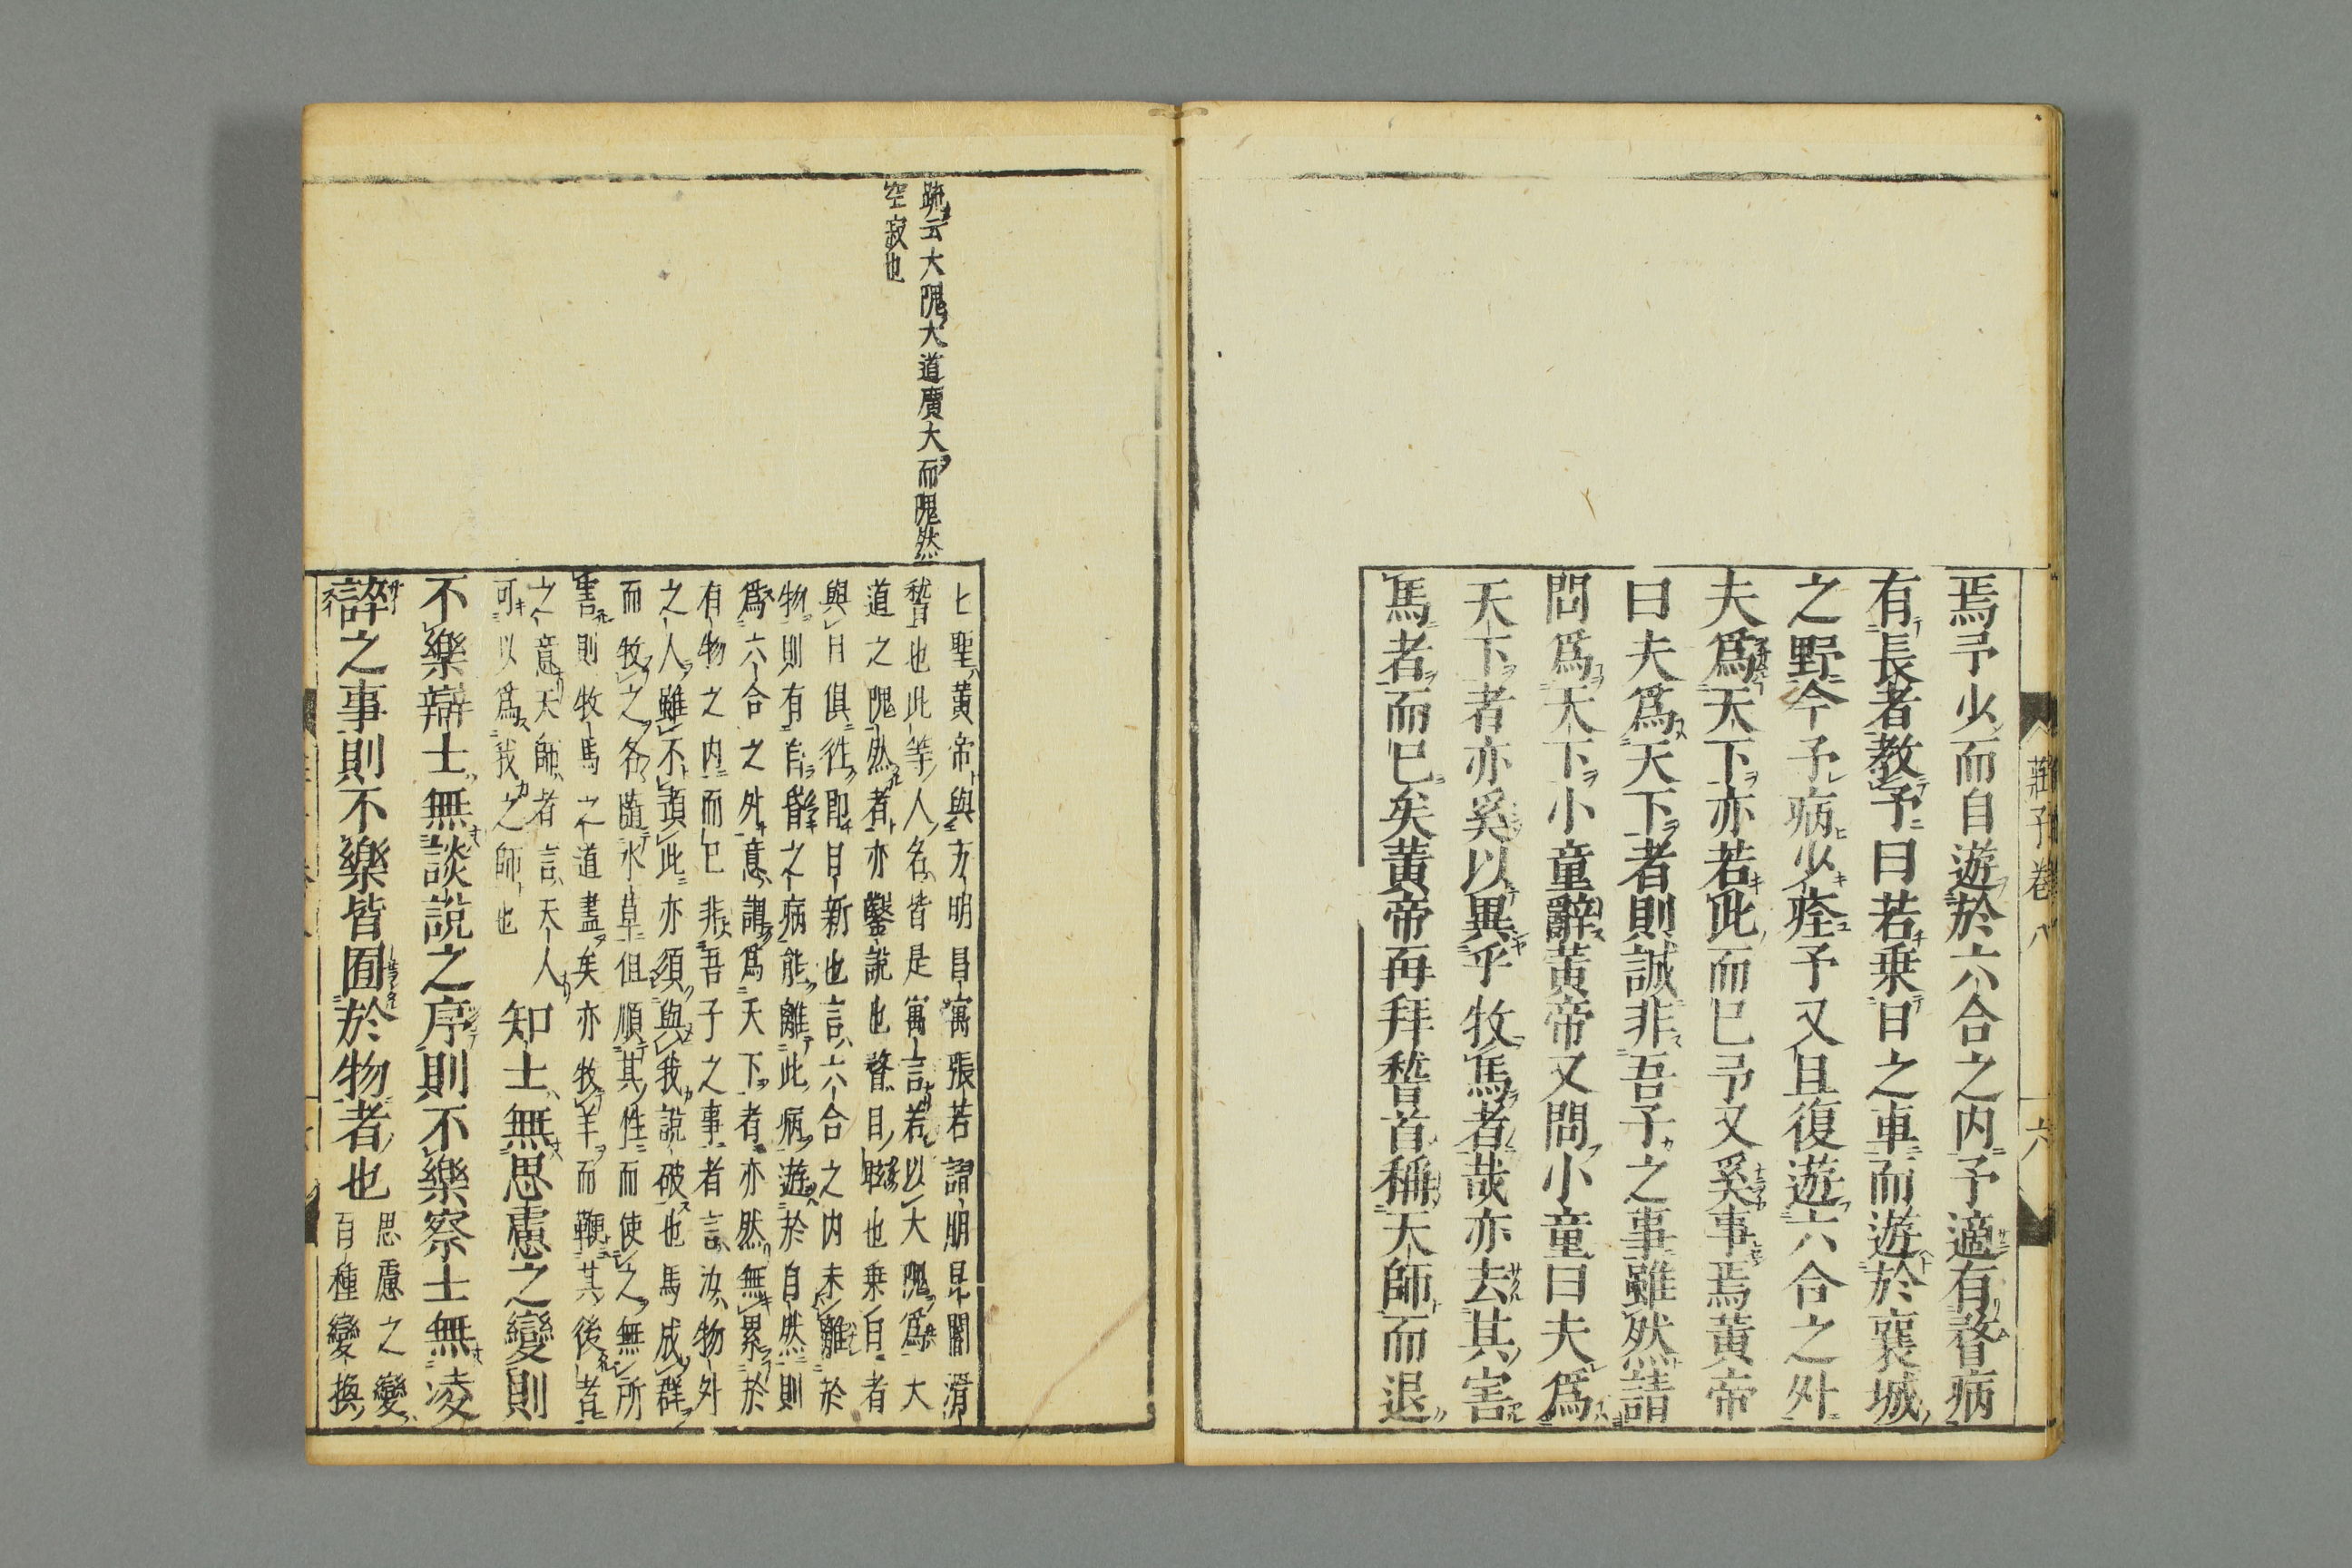 莊子卷八
六
焉予少而自遊於六合之内予適有瞀病
有長者教予曰若乗日之車而遊於襄城
之野今予病少痊予又且復遊六合之外
夫爲天下亦若此而已予又奚事焉黄帝
曰夫爲天下者則誠非吾子之事雖然請
問爲天下小童辭黄帝又問小童曰夫爲
天下者亦奚以異乎牧馬者哉亦去其害
馬者而已矣黄帝再拜䭫首稱天師而退
疏云大隗大道廣大而隗然
空寂也
七聖黄帝與方明昌㝢張若謵朋昆閽滑
稽也此等人名皆是寓言若以大隗爲大
道之隗然者亦鑿說也瞀目眩也乗日者
與日俱徃即日新也言六合之内未離於
物則有自昏之病能離此病遊於自然則
爲六合之外意謂爲天下者亦然無累於
有物之内而已非吾子之事者言汝物外
之人雖不預此亦須與我說破也馬成群
而牧之各隨水草但順其性而使之無所
害則牧馬之道盡矣亦牧羊而鞭其後者
之意天師者言天人
可以爲我之師也
知士無思慮之變則
不樂辯士無談說之序則不樂察士無凌
誶之事則不樂皆囿於物者也
思慮之變
百種變換